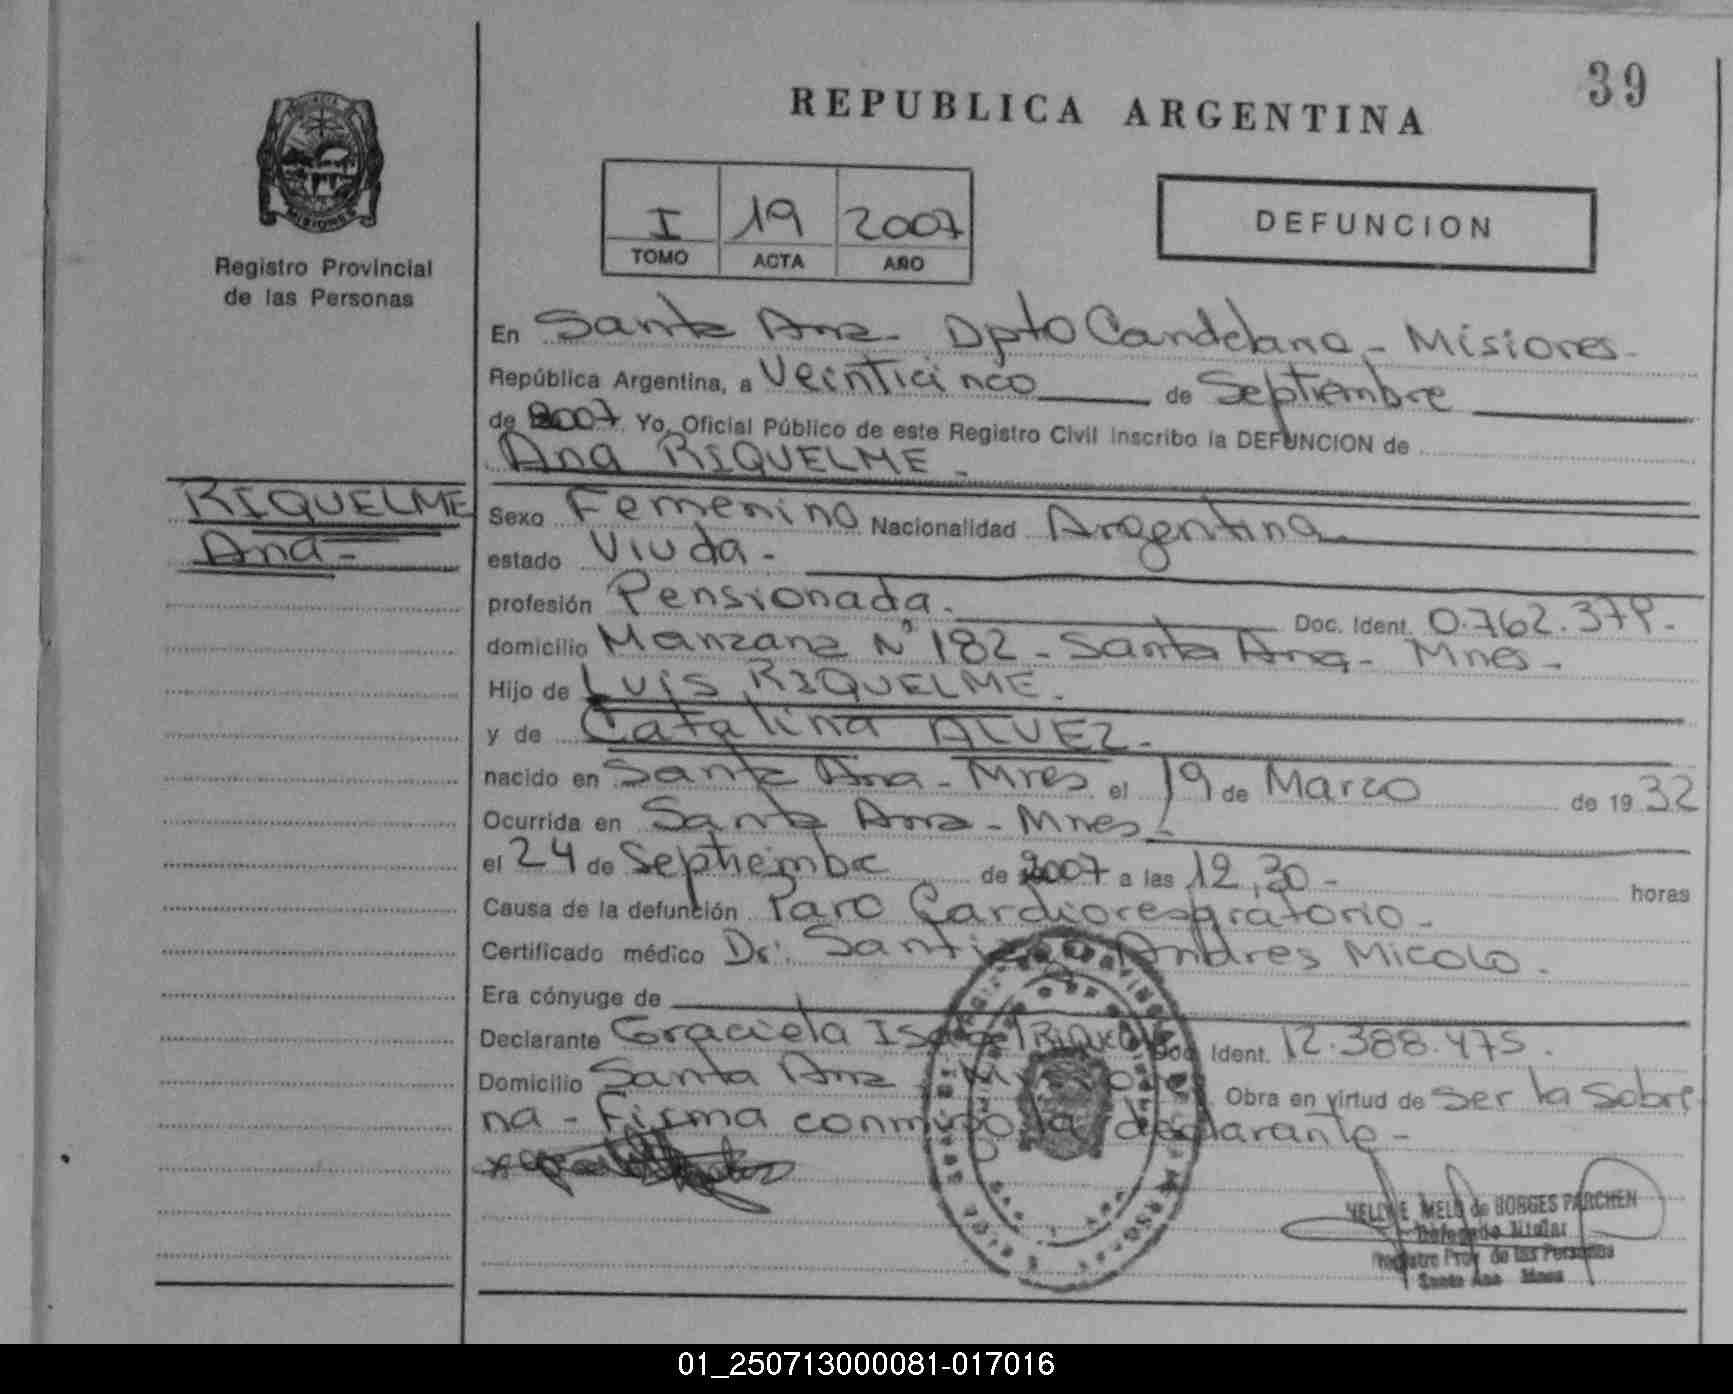 39
REPUBLICA ARGENTINA
MISIONES
Registro Provincial
de las Personas
I 19 2007
TOMO ACTA AÑO
DEFUNCION
En Santa Ana - Dpto Candelaria - Misiones -
República Argentina, a Veinticinco de Septiembre
de 2007. Yo, Oficial Público de este Registro Civil inscribo la DEFUNCION de
Ana RIQUELME -
RIQUELME
Ana -
Sexo Femenino Nacionalidad Argentina
estado Viuda -
profesión Pensionada. Doc. Ident.
domicilio Manzana Nº 182 - Santa Ana - Mnes -
Hijo de Luis RIQUELME.
y de Catalina ALVEZ -
nacido en Santa Ana - Mnes el 19 de Marzo de 1932
Ocurrida en Santa Ana - Mnes -
el 24 de Septiembre de 2007 a las 12,30 - horas
Causa de la defunción Paro Cardiorespiratorio -
Certificado médico Dr: Santiago Andres Micolo.
Era cónyuge de
Declarante Graciela Isabel RIQUELME Doc. Ident. 12.388.475.
Domicilio Santa Ana Misiones Obra en virtud de Ser la Sobri
na - Firma conmigo la declarante -
NELLY E. MELO de BORGES PARCHEN
Delegada Titular
Registro Prov. de las Personas
Santa Ana Mnes
01_250713000081-017016